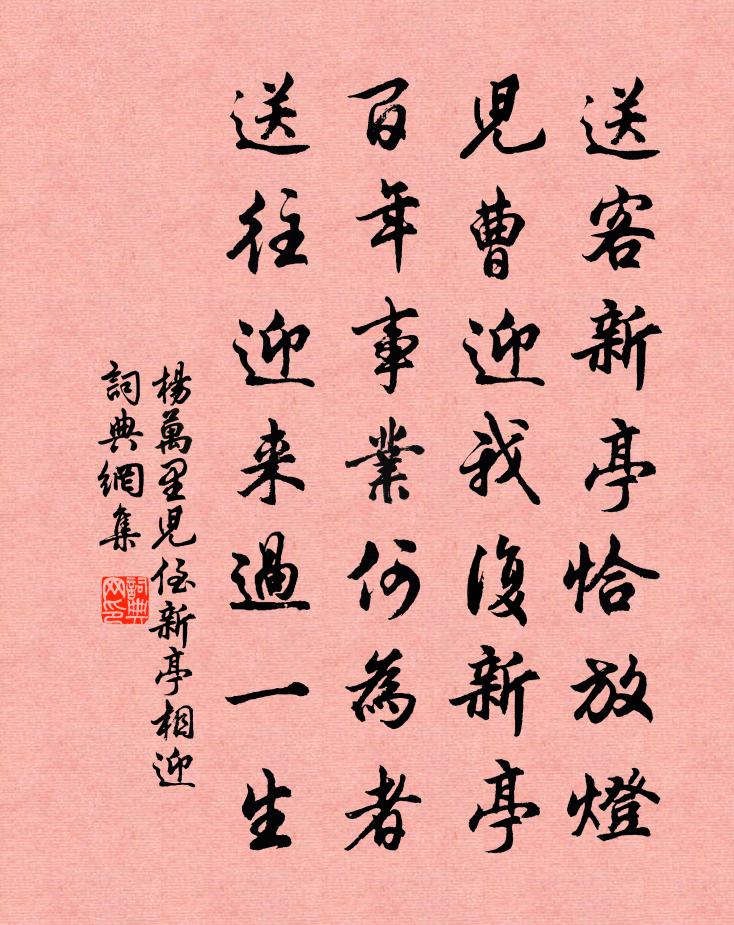 送客新亭恰放燈
児曹迎我復新亭
百年事業何為者
送往迎来過一生
楊萬里児侄新亭相迎
詞典網集
詞典
网印